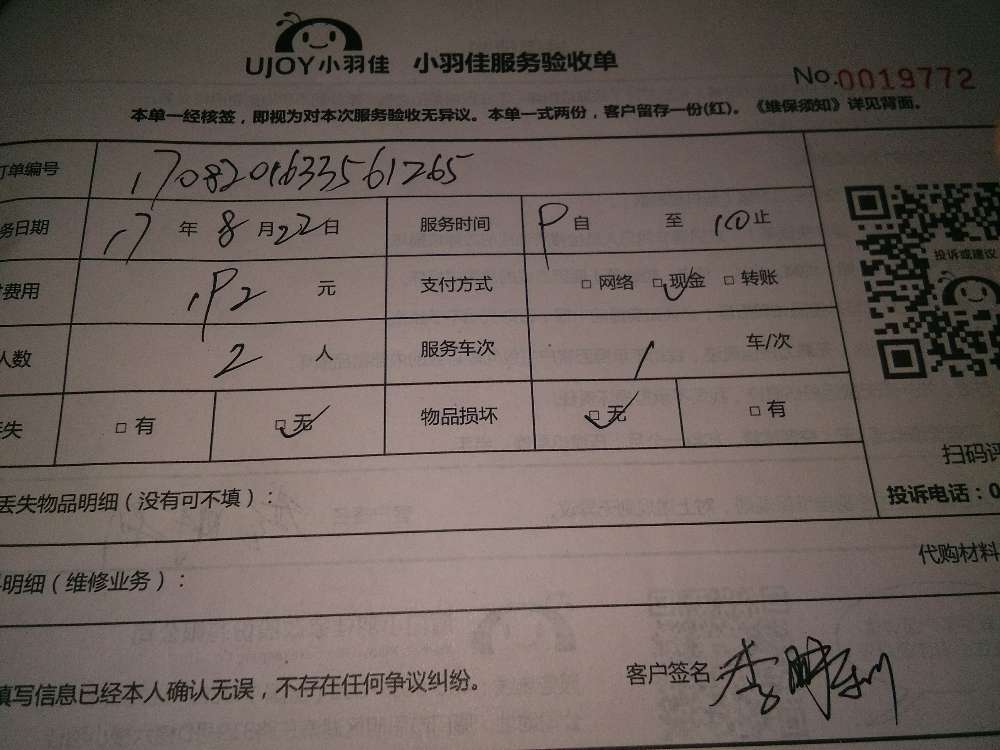 UJOY小羽佳 小羽佳服务验收单
No.0019772
本单一经核签，即视为对本次服务验收无异议。本单一式两份，客户留存一份(红)。《维保须知》详见背面。
订单编号 1708201633561265
务日期 17 年 8 月 22 日 服务时间 自 至 止
费用 元 支付方式 □ 网络 □ 现金 □ 转账
人数 2 人 服务车次 1 车/次
失 □ 有 □ 无 物品损坏 □ 无 □ 有
投诉或建议
扫码评
投诉电话：0
丢失物品明细（没有可不填）：
代购材料
明细（维修业务）：
填写信息已经本人确认无误，不存在任何争议纠纷。
客户签名